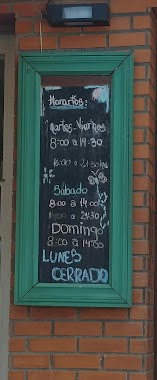 Horarios:
Martes - Viernes
8:00 a 14:30
16:00 a 21:30hs
Sábado
8:00 a 14:00
16:00 a 21:30
Domingo
8:00 a 14:00
LUNES
CERRADO